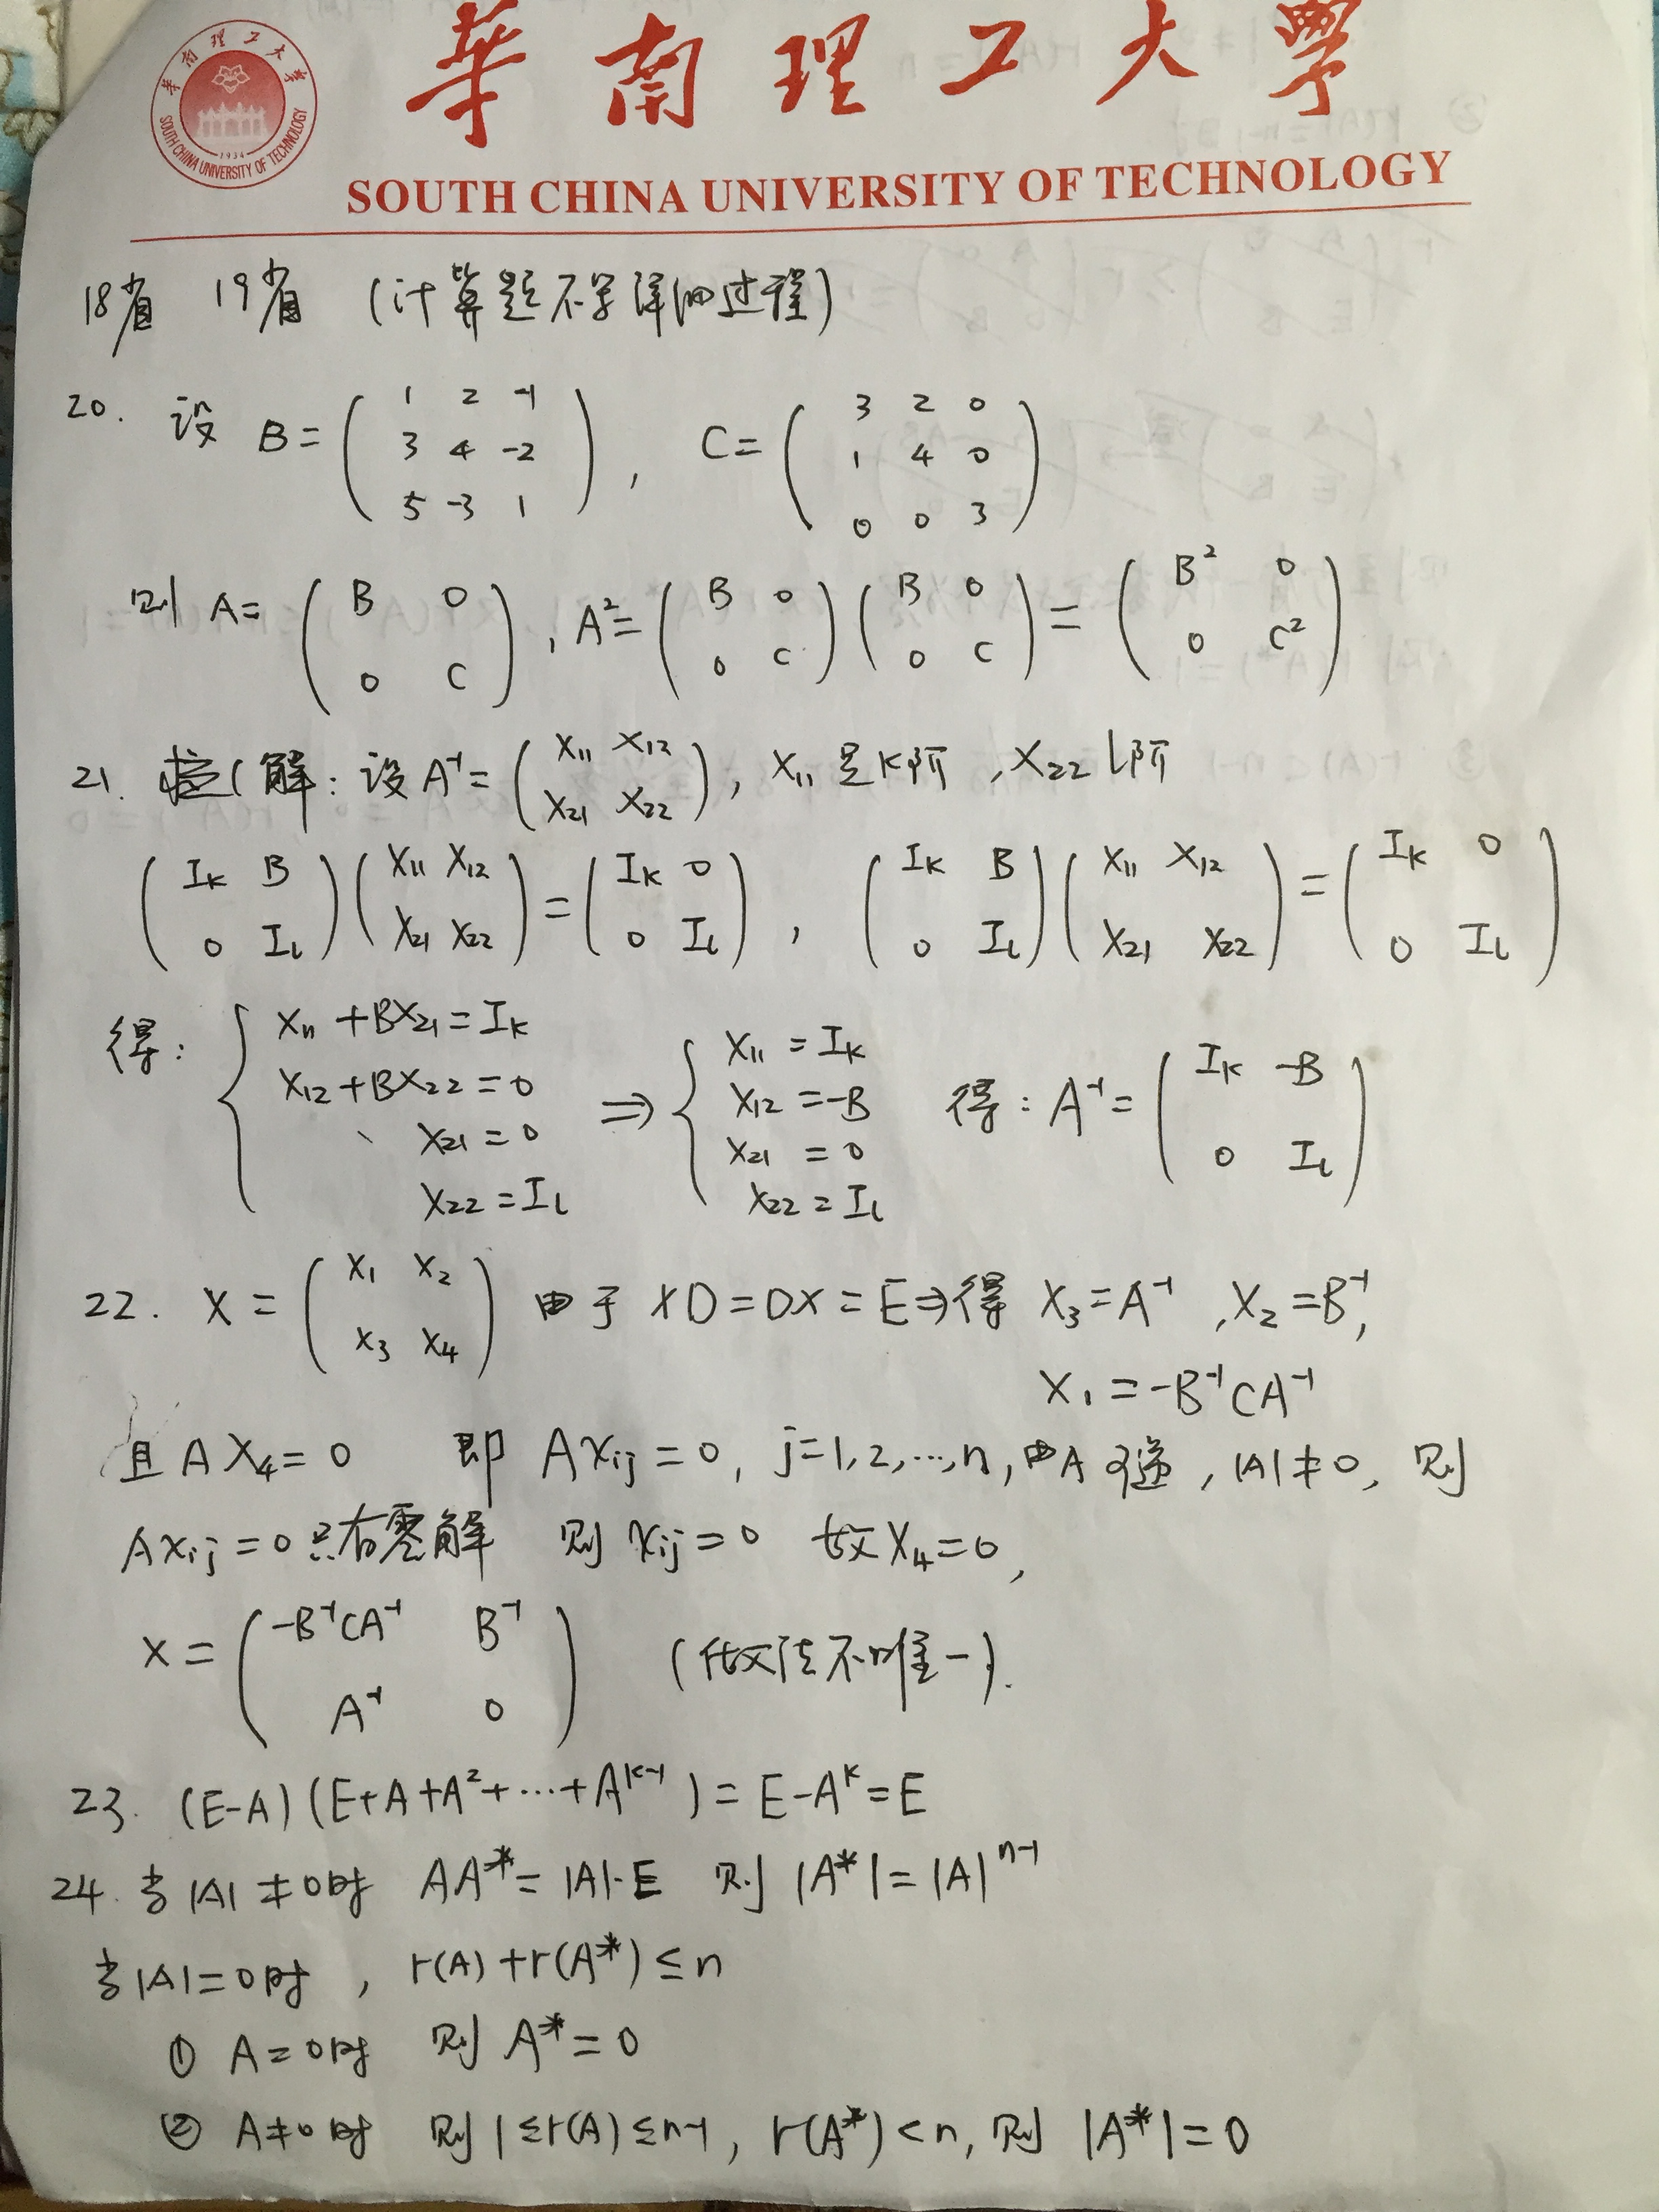 華南理工大學
SOUTH CHINA UNIVERSITY OF TECHNOLOGY
華南理工大學
SOUTH CHINA UNIVERSITY OF TECHNOLOGY
1934
18省 19省 (计算题不写详细过程)
20. 设 B = ( 1 2 -1 ; 3 4 -2 ; 5 -3 1 ), C = ( 3 2 0 ; 1 4 0 ; 0 0 3 )
则 A = ( B 0 ; 0 C ), A² = ( B 0 ; 0 C ) ( B 0 ; 0 C ) = ( B² 0 ; 0 C² )
21. 解: 设 A⁻¹ = ( X₁₁ X₁₂ ; X₂₁ X₂₂ ), X₁₁ 是 K阶, X₂₂ l阶
( I_K B ; 0 I_l ) ( X₁₁ X₁₂ ; X₂₁ X₂₂ ) = ( I_K 0 ; 0 I_l ), ( I_K B ; 0 I_l ) ( X₁₁ X₁₂ ; X₂₁ X₂₂ ) = ( I_K 0 ; 0 I_l )
得: { X₁₁ + BX₂₁ = I_K ; X₁₂ + BX₂₂ = 0 ; X₂₁ = 0 ; X₂₂ = I_l ⇒ { X₁₁ = I_K ; X₁₂ = -B ; X₂₁ = 0 ; X₂₂ = I_l 得: A⁻¹ = ( I_K -B ; 0 I_l )
22. X = ( X₁ X₂ ; X₃ X₄ ) 由于 XD = DX = E ⇒ 得 X₃ = A⁻¹, X₂ = B⁻¹,
X₁ = -B⁻¹CA⁻¹
且 AX₄ = 0 即 Axij = 0, j=1,2,…,n, 由A可逆, |A| ≠ 0, 则
Axij = 0 只有零解 则 xij = 0 故 X₄ = 0,
X = ( -B⁻¹CA⁻¹ B⁻¹ ; A⁻¹ 0 ) (做法不唯一).
23. (E-A)(E+A+A²+…+A^{k-1}) = E-A^k = E
24. 当 |A| ≠ 0时 AA* = |A|·E 则 |A*| = |A|^{n-1}
当 |A| = 0时, r(A)+r(A*) ≤ n
① A = 0时 则 A* = 0
② A ≠ 0时 则 1 ≤ r(A) ≤ n-1, r(A*) < n, 则 |A*| = 0